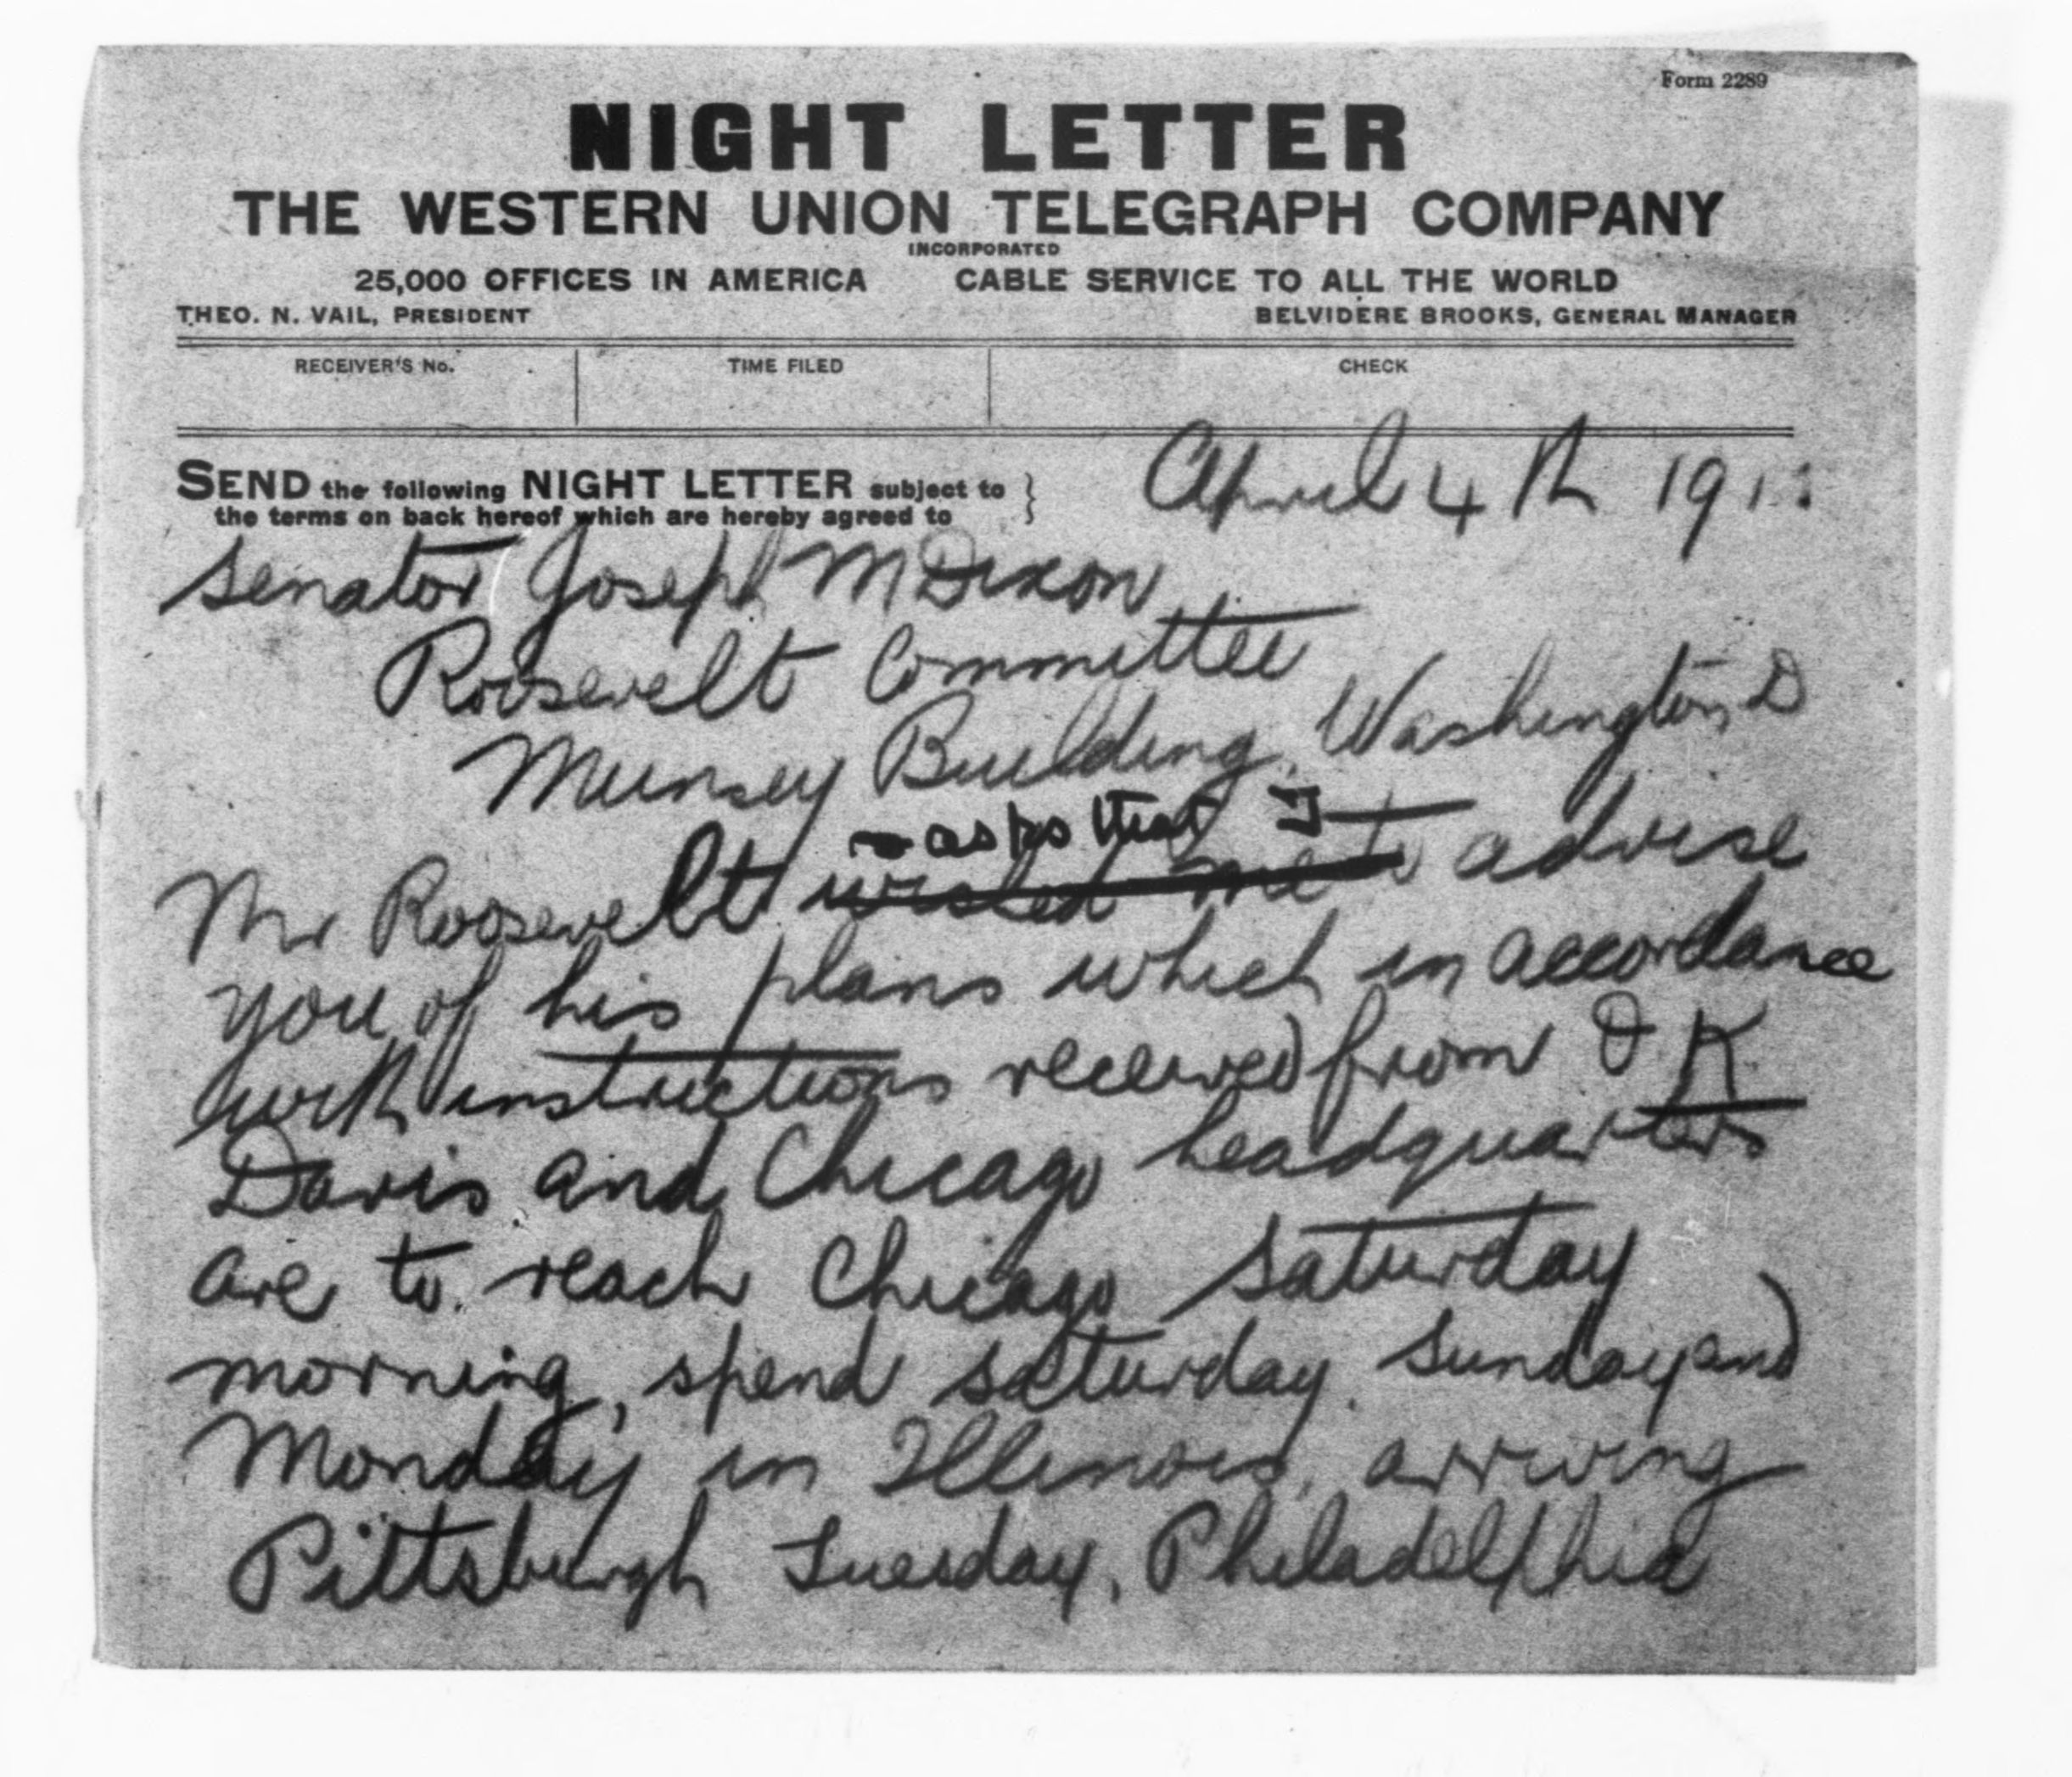 Form 2289
NIGHT LETTER
THE WESTERN UNION TELEGRAPH COMPANY
INCORPORATED
25,000 OFFICES IN AMERICA CABLE SERVICE TO ALL THE WORLD
THEO. N. VAIL, PRESIDENT BELVIDERE BROOKS, GENERAL MANAGER
RECEIVER'S No. TIME FILED CHECK
April 4th 191
SEND the following NIGHT LETTER subject to
the terms on back hereof which are hereby agreed to
Senator Joseph M Dixon
Roosevelt Committee
Munsey Building, Washington, D
asks that I
Mr Roosevelt wished me to advise
you of his plans which in accordance
with instructions received from O K
Davis and Chicago headquarters
are to reach Chicago Saturday
morning, spend Saturday. Sunday and
Monday in Illinois, arriving
Pittsburgh Tuesday, Philadelphia